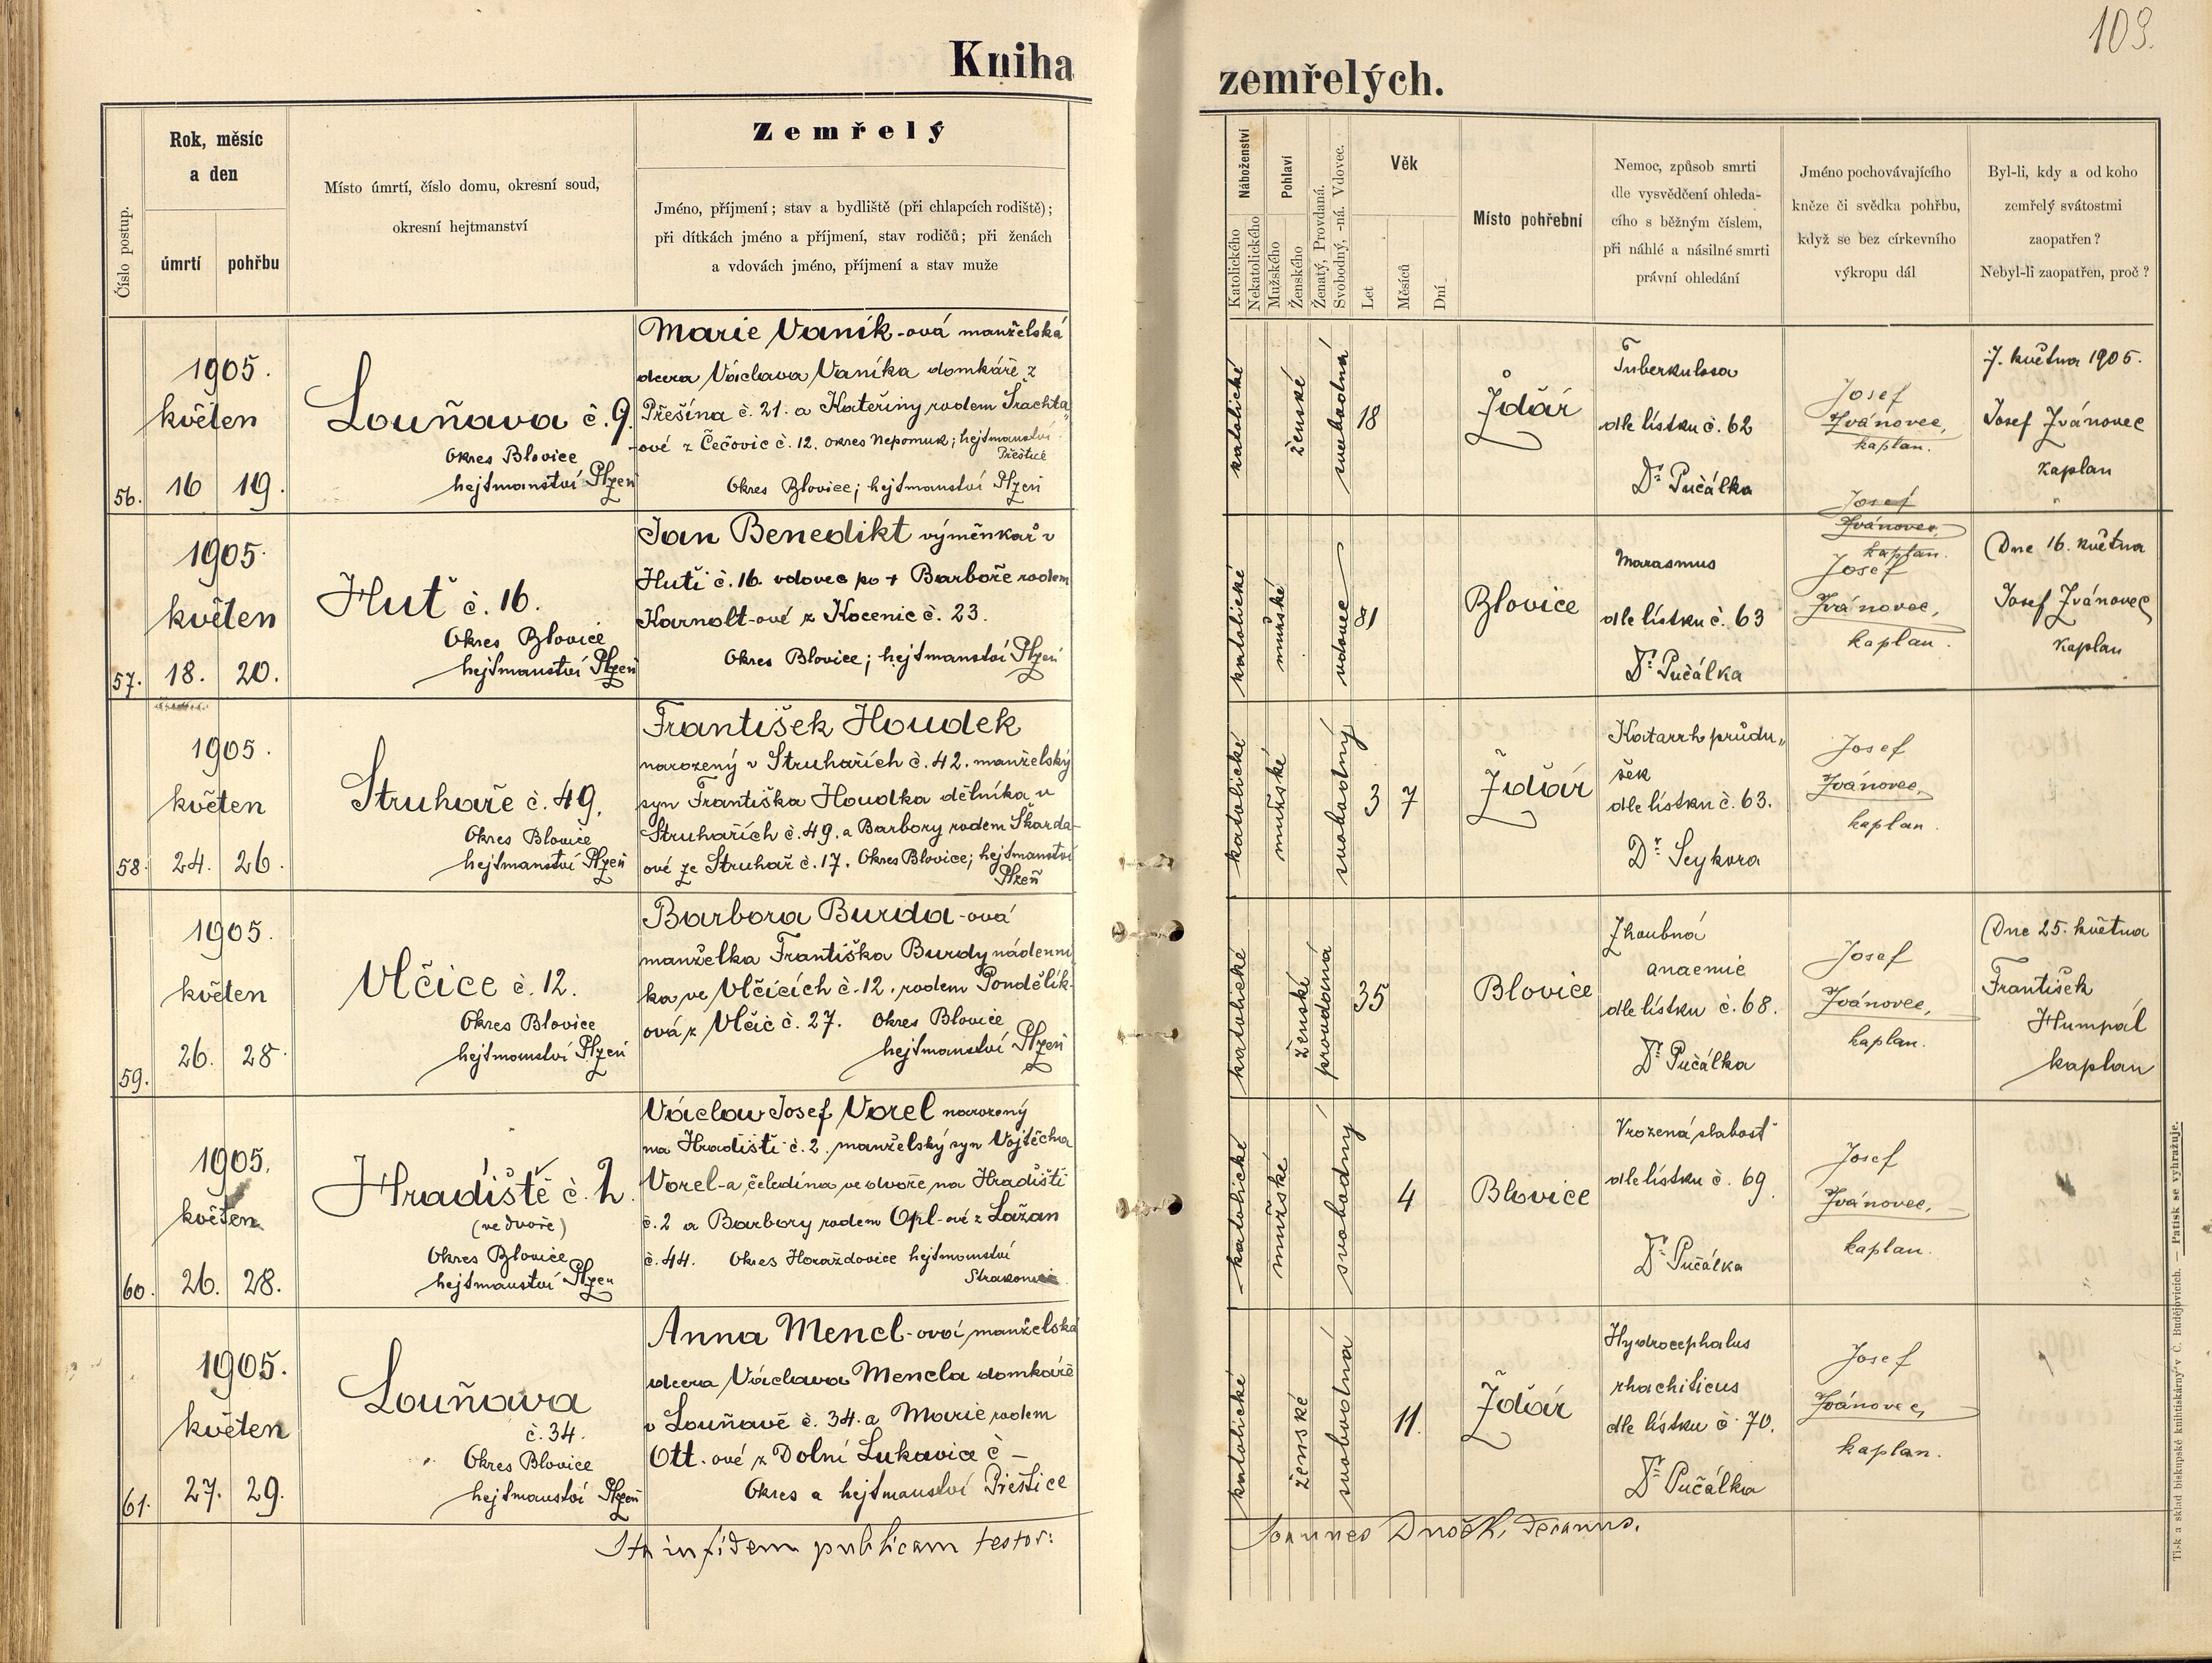 103.
Kniha zemřelých.
Číslo postup.
Rok, měsíc
a den
úmrtí
pohřbu
Místo úmrtí, číslo domu, okresní soud,
okresní hejtmanství
Zemřelý
Jméno, příjmení; stav a bydliště (při chlapcích rodiště);
při dítkách jméno a příjmení, stav rodičů; při ženách
a vdovách jméno, příjmení a stav muže
Náboženství
Katolického
Nekatolického
Pohlaví
Mužského
Ženského
Ženatý, Provdaná.
Svobodný, -ná. Vdovec.
Věk
Let
Měsíců
Dní
Místo pohřební
Nemoc, způsob smrti
dle vysvědčení ohleda-
cího s běžným číslem,
při náhlé a násilné smrti
právní ohledání
Jméno pochovávajícího
kněze či svědka pohřbu,
když se bez církevního
výkropu dál
Byl-li, kdy a od koho
zemřelý svátostmi
zaopatřen?
Nebyl-li zaopatřen, proč?
56.
1905.
květen
16 19.
Louňava č. 9.
Okres Blovice
hejtmanství Plzeň
Marie Vaník-ová manželská
dcera Václava Vaníka domkáře z
Přešína č. 21. a Kateřiny rodem Trachta-
ové z Čečovic č. 12. okres Nepomuk; hejtmanství
Přeštice
Okres Blovice; hejtmanství Plzeň
katolické
ženské
svobodná
18
Ždár
Tuberkulosa
dle lístku č. 62
Dr. Pučálka
Josef
Ivánovec,
kaplan.
7. května 1905.
Josef Ivánovec
kaplan
57.
1905.
květen
18. 20.
Huť č. 16.
Okres Blovice
hejtmanství Plzeň
Jan Benedikt výměnkář v
Huti č. 16. vdovec po + Barboře rodem
Karnolt-ové z Kocenic č. 23.
Okres Blovice; hejtmanství Plzeň
katolické
mužské
vdovec
81
Blovice
Marasmus
dle lístku č. 63
Dr. Pučálka
Josef
Ivánovec,
kaplan.
Josef
Ivánovec,
kaplan.
Dne 16. května
Josef Ivánovec
kaplan
58.
1905.
květen
24. 26.
Struhaře č. 49.
Okres Blovice
hejtmanství Plzeň
František Houdek
narozený v Struhařích č. 42. manželský
syn Františka Houdka dělníka v
Struhařích č. 49. a Barbory rodem Škarda-
ové ze Struhař č. 17. Okres Blovice; hejtmanství
Plzeň
katolické
mužské
svobodný
3 7
Ždár
Katarrh průdu-
šek
dle lístku č. 63.
Dr. Seykora
Josef
Ivánovec,
kaplan.
59.
1905.
květen
26. 28.
Vlčice č. 12.
Okres Blovice
hejtmanství Plzeň
Barbora Burda-ová
manželka Františka Burdy nádenní-
ka ve Vlčicích č. 12. rodem Pondělík-
ová z Vlčic č. 27. Okres Blovice
hejtmanství Plzeň
katolické
ženské
provdaná
35
Blovice
Zhoubná
anaemie
dle lístku č. 68.
Dr. Pučálka
Josef
Ivánovec,
kaplan.
Dne 25. května
František
Humpál
kaplan
60.
1905.
květen
26. 28.
Hradiště č. 2.
(ve dvoře)
Okres Blovice
hejtmanství Plzeň
Václav Josef Vorel narozený
na Hradišti č. 2. manželský syn Vojtěcha
Vorel-a čeledína ve dvoře na Hradišti
č. 2 a Barbory rodem Opl-ové z Lažan
č. 44. Okres Horažďovice hejtmanství
Strakonice
katolické
mužské
svobodný
4
Blovice
Vrozená slabost
dle lístku č. 69.
Dr. Pučálka
Josef
Ivánovec,
kaplan.
61.
1905.
květen
27. 29.
Louňava
č. 34.
Okres Blovice
hejtmanství Plzeň
Anna Mencl-ová, manželská
dcera Václava Mencla domkáře
v Louňavě č. 34. a Marie rodem
Ott.ové z Dolní Lukavice č –
Okres a hejtmanství Přeštice
katolické
ženské
svobodná
11.
Ždár
Hydrocephalus
rhachiticus
dle lístku č. 70.
Dr. Pučálka
Josef
Ivánovec,
kaplan.
Ita in fidem publicam testor:
Joannes decanus.
Tisk a sklad biskupské knihtiskárny v Č. Budějovicích. — Patisk se vyhražuje.